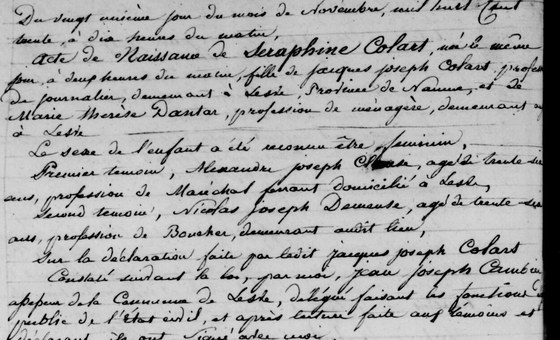 Du vingt unième jour du mois de Novembre, mil huit cent
trente, à dix heures du matin,
Acte de Naissance de Seraphine Colart, née le même
jour, à deux heures du matin, fille de jacques joseph Colart, profession
de journalier, demeurant à Lesve Province de Namur, et de
Marie Therese Dantar, profession de ménagère, demeurant
à Lesve
Le sexe de l'enfant a été reconnu être féminin,
Premier temoin, Alexandre joseph agé de trente
ans, profession de Maréchal ferant domicilié à Lesve,
Second temoin, Nicolas joseph Demeuse, agé de trente
ans, profession de Boucher, demeurant audit lieu,
Sur la déclaration faite par ledit jacques joseph Colart
Constaté suivant la loi, par moi, jean joseph
de la Commune de Lesve, délégué faisant les fonctions
public de l'état civil, et après lecture faite aux temoins et
déclarant ils ont signé avec moi